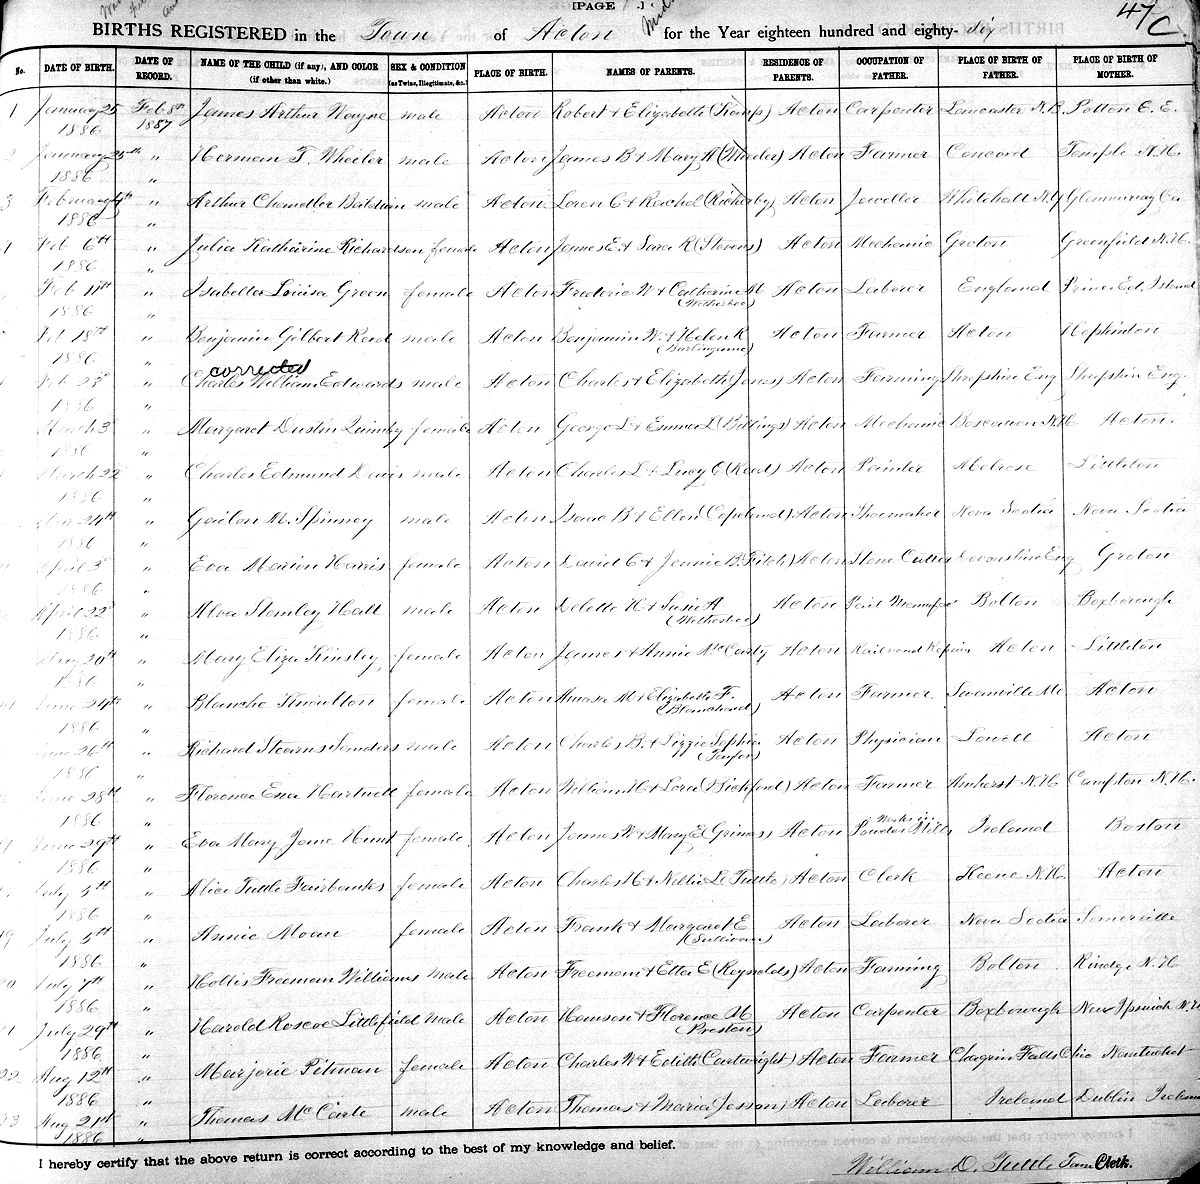 [PAGE 1.]
47 C
BIRTHS REGISTERED in the Town of Acton for the Year eighteen hundred and eighty-six
No. DATE OF BIRTH. DATE OF RECORD. NAME OF THE CHILD (if any), AND COLOR (if other than white.) SEX & CONDITION (as Twins, Illegitimate, &c.) PLACE OF BIRTH. NAMES OF PARENTS. RESIDENCE OF PARENTS. OCCUPATION OF FATHER. PLACE OF BIRTH OF FATHER. PLACE OF BIRTH OF MOTHER.
1 January 25 1886 Feb 8th 1887 James Arthur Wayne male Acton Robert & Elizabeth (Kemp) Acton Carpenter Lancaster N.B. Potton C. E.
2 January 25th 1886 " Herman T. Wheeler male Acton James B & Mary A (Wheeler) Acton Farmer Concord Temple N.H.
3 February 4th 1886 " Arthur Chandler Baldwin male Acton Loren C & Rachel (Richerby) Acton Jeweller Whitehall N.Y
Feb 6th 1886 " Julia Katharine Richardson female Acton James E. & Sara R (Stevens) Acton Mechanic Groton Greenfield N.H.
Feb 11th 1886 " Isabella Louisa Green female Acton Frederic W & Catherine M (Wetherbee) Acton Laborer England Prince Ed. Island
Feb 18th 1886 " Benjamin Gilbert Reed male Acton Benjamin W. & Helen R (Burlingame) Acton Farmer Acton Hopkinton
corrected
Feb 23d 1886 " Charles William Edwards male Acton Charles & Elizabeth (Jones) Acton Farming Shropshire Eng Shropshire Eng.
March 3d 1886 " Margaret Dustin Quimby female Acton George L & Emma L (Billings) Acton Mechanic Boscawen N.H. Acton.
March 22 1886 " Charles Edmund Davis male Acton Charles L & Lucy C (Reed) Acton Painter Melrose Littleton
24th 1886 " Gailon M. Spinney male Acton Isaac B & Ellen (Copeland) Acton Shoemaker Nova Scotia Nova Scotia
April 3d 1886 " Eva Marion Harris female Acton David C & Jennie B (Fitch) Acton Stone Cutter Devonshire Eng Groton
April 22d 1886 " Alva Stanley Hall male Acton Delette H & Susie A (Wetherbee) Acton Pail Manufac Bolton Boxborough
May 20th 1886 " Mary Eliza Kinsley female Acton James & Annie McCarty Acton Railroad Repair Acton Littleton
June 24th 1886 " Blanche Knowlton female Acton Amasa M & Elizabeth F. (Blanchard) Acton Farmer Swanville Me Acton
June 26th 1886 " Richard Stearns Sanders male Acton Charles B. & Lizzie Sophia (Taylor) Acton Physician Lowell Acton
June 28th 1886 " Florence Ena Hartwell female Acton William H & Lora (Bickford) Acton Farmer Amherst N.H. Campton N.H.
June 29th 1886 " Eva Mary Jane Hunt female Acton James W & Mary E (Grimes) Acton Works in Powder Mills Ireland Boston
July 5th 1886 " Alice Tuttle Fairbanks female Acton Charles H & Nellie L (Tuttle) Acton Clerk Keene N.H. Acton
19 July 5th 1886 " Annie Moan female Acton Frank & Margaret E (Sullivan) Acton Laborer Nova Scotia Somerville
20 July 7th 1886 " Hollis Freeman Williams male Acton Freeman & Etta E (Reynolds) Acton Farming Bolton Rindge N.H
July 29th 1886 " Harold Roscoe Littlefield male Acton Hanson & Florence M (Preston) Acton Carpenter Boxborough New Ipswich N.H
22 Aug 12th 1886 " Marjorie Pitman female Acton Charles W & Edith (Cartwright) Acton Farmer Chagrin Falls Ohio Nantucket
23 Aug 21st 1886 " Thomas McCarte male Acton Thomas & Maria (Jesson) Acton Laborer Ireland Dublin Ireland
I hereby certify that the above return is correct according to the best of my knowledge and belief.
William D. Tuttle Town Clerk.